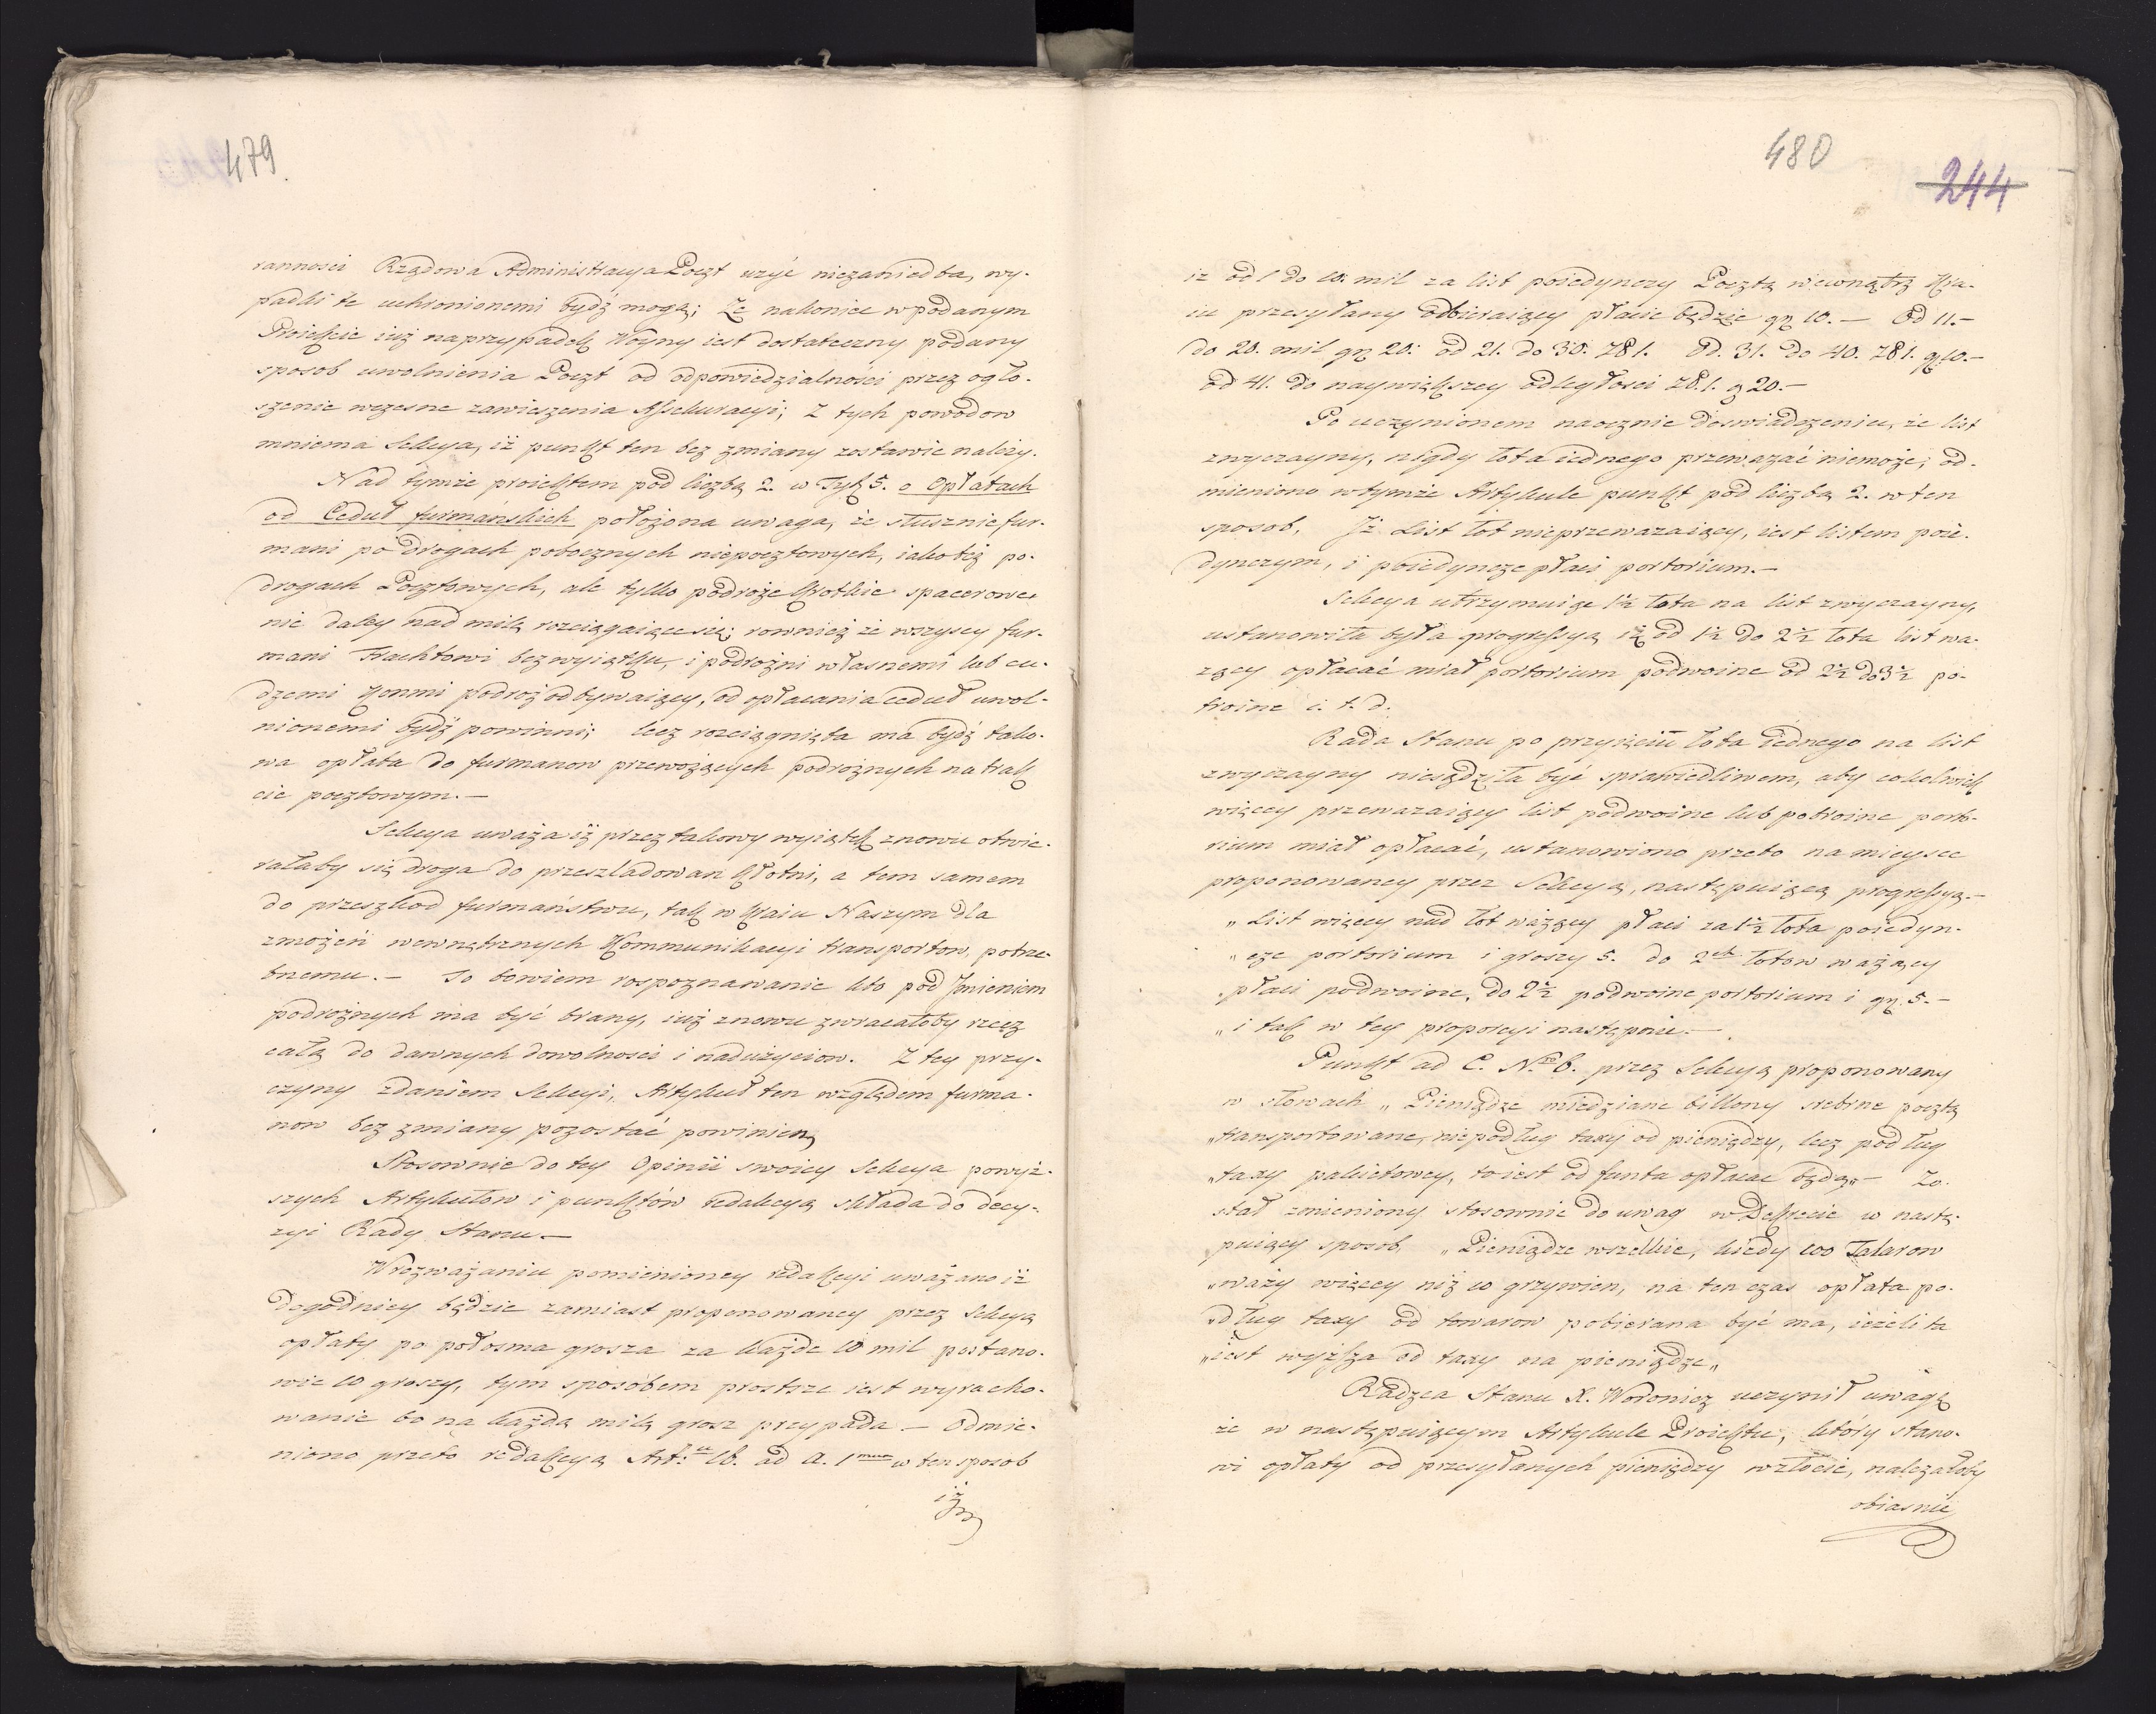 479.
ranności Rządowa Administracya Poczt użyć niezaniedba, wy-
padki te uchronionemi bydź mogą; Że nakoniec w podanym
Proiekcie iuż na przypadek Woyny iest dostateczny podany
sposob uwolnienia Poczt od odpowiedzialności przez ogło-
szenie wczesne zawieszenia Assekuracyi; Z tych powodow
mniema Sekcya, iż punkt ten bez zmiany zostawić należy.
Nad tymże proiektem pod liczbą 2. w Tyt 5. o Opłatach
od Ceduł furmańskich położona uwaga, że słusznie fur-
mani po drogach pobocznych niepocztowych, iako też po-
drogach Pocztowych, ale tylko podroże krotkie spacerowe
nie daley nad milę rozciągaiące się; rownież że wszyscy fur-
mani Frachtowi bez wyiątku, i podrożni własnemi lub cu-
dzemi Konmi podroż odbywaiący, od opłacania ceduł uwol-
nionemi bydź powinni; lecz rozciągnięta ma bydź tako-
wa opłata do furmanow przewożących podrożnych na trak
cie pocztowym.—
Sekcya uważa iż przez takowy wyiątek znowu otwie-
rałaby się droga do przeszladowan kłotni, a tem samem
do przeszkod furmaństwu, tak w kraiu Naszym dla
zmożeń wewnętrznych Kommunikacyi transportow, potrze-
bnemu.— To bowiem rospoznawanie kto pod Jmieniem
podrożnych ma być brany, iuż znowu zwracałoby rzecz
całą do dawnych dowolności i nadużyciow. Z tey przy-
czyny zdaniem Sekcyi, Artykuł ten względem furma-
now bez zmiany pozostać powinien,
Stosownie do tey Opinii swoiey Sekcya powyż-
szych Artykułow i punktów redakcyą składa do decy-
zyi Rady Stanu—
W rozważaniu pomienioney redakcyi uważano iż
dogodniey będzie zamiast proponowaney przez Sekcyą
opłaty po połosma grosza za każde 10 mil postano-
wić 10 groszy, tym sposóbem prostsze iest wyracho-
wanie bo na każdą milę grosz przypada — Odmie-
niono przeto redakcyą Art: 16. ad A. 1mum w ten sposob
iż
480
244
iż od 1 do 10. mil za list poiedynczy Pocztą wewnątrz Kra-
iu przesyłany odbieraiący płacić będzie gr 10.— Od 11.—
do 20. mil gr 20: od 21. do 30. Zł 1. Od. 31. do 40. Zł 1. gr 10.—
od 41. do naywiększey odległości Zł. 1. g 20.—
Po uczynionem naocznie doswiadczeniu, że list
zwyczayny, nigdy łota iednego przeważać niemoże; od-
mieniono w tymże Artykule punkt pod liczbą 2. w ten
sposob. Jż List łot nieprzewazaiący, iest listem poie-
dynczym, i poiedyncze płaci portorium.—
Sekcya utrzymuiąc 1½ łota na list zwyczayny,
ustanowiła była progressyą iż od 1½ do 2½ łota list wa-
żący opłacać miał portorium podwoine od 2½ do 3½ po-
troine i. t. d.
Rada Stanu po przyięciu łota iednego na list
zwyczayny niesądziła być sprawiedliwem, aby cokolwiek
więcey przewazaiący list podwoine lub potroine porto-
rium miał opłacać, ustanowiono przeto na mieysce
proponowaney przez Sekcyą, następuiącą progressyą.—
„ List więcey nad łot ważący płaci za 1½ łota poiedyn-
„ cze portorium i groszy 5. do 2ch łotow ważący
„ płaci podwoine, do 2½ podwoine portorium i gr. 5.—
„ i tak w tey proporcyi następnie.—
Punkt ad C. Nro 6. przez Sekcyą proponowany
w słowach „ Pieniądze miedziane billony srebrne pocztą
„ transportowane, niepodług taxy od pieniędzy, lecz podług
„ taxy pakietowey, to iest od funta opłacac będą„— Zo-
stał zmieniony stosownie do uwag w Dekrecie w nastę-
puiący sposob. „ Pieniądze wszelkie, kiedy 100 Talarow
„ waży więcey niż 10 grzywien, na ten czas opłata po-
„ dług taxy od towarow pobierana być ma, ieżeli ta
„ iest wyższa od taxy na pieniądze„
Radzca Stanu X. Woronicz uczynił uwagę
że w następuiącym Artykule Proiektu, który stano-
wi opłaty od przesyłanych pieniędzy w złocie, należałoby
obiasnić